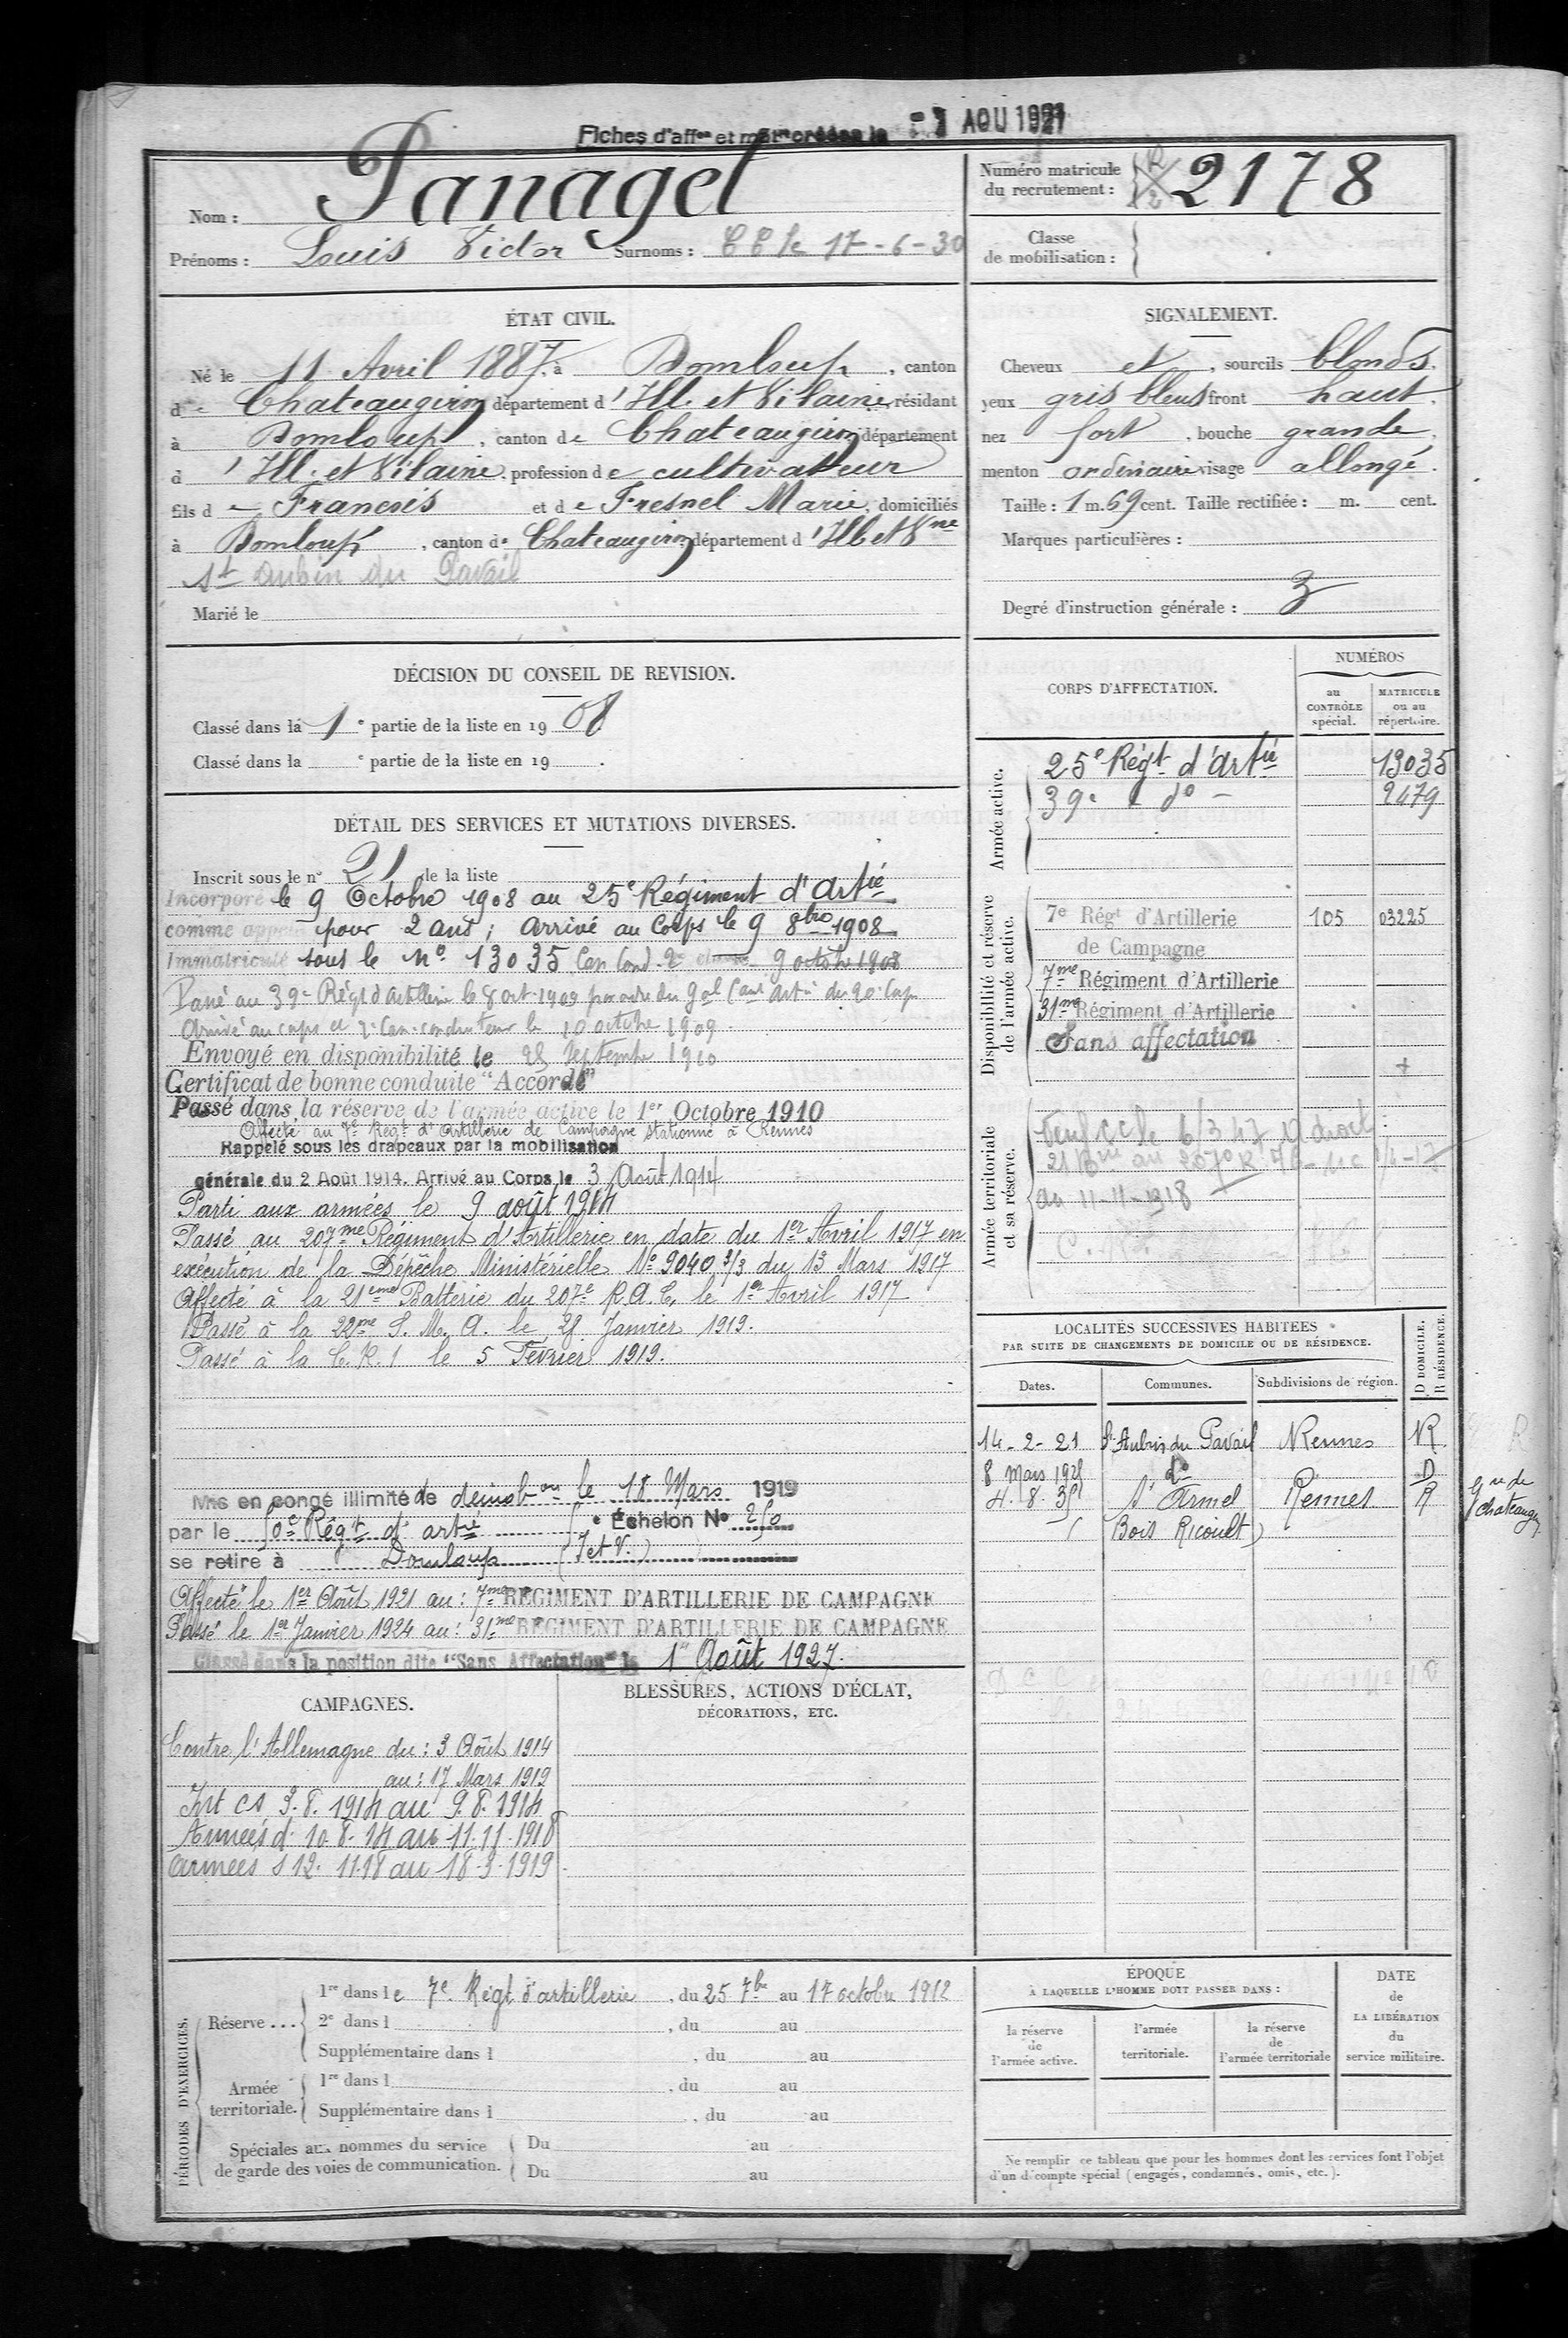 Fiches d'aff^on et mat^re créées le - 1 AOU 1921
Nom : Panaget
Prénoms : Louis Victor Surnoms : CC le 17-6-30
Numéro matricule du recrutement : 2178
Classe de mobilisation :
ÉTAT CIVIL.
Né le 11 Avril 1887, à Domloup, canton
de Chateaugiron, département d'Ille et Vilaine, résidant
à Domloup, canton de Chateaugiron, département
d'Ille et Vilaine, profession de cultivateur
fils de François et de Fresnel Marie, domiciliés
à Domloup, canton de Chateaugiron, département d'Ille et V^ne
St Aubin du Pavail
Marié le
SIGNALEMENT.
Cheveux et, sourcils blonds.
yeux gris bleus front haut.
nez fort, bouche grande,
menton ordinaire visage allongé.
Taille : 1 m. 69 cent. Taille rectifiée : m. cent.
Marques particulières :
Degré d'instruction générale : 3
DÉCISION DU CONSEIL DE REVISION.
Classé dans la 1^e partie de la liste en 1908
Classé dans la ^e partie de la liste en 19 .
DÉTAIL DES SERVICES ET MUTATIONS DIVERSES.
Inscrit sous le n° 21 de la liste
Incorporé le 9 Octobre 1908 au 25^e Régiment d'Art^ie
comme appelé pour 2 ans ; Arrivé au Corps le 9 8^bre 1908
Immatriculé sous le N° 13035 Can Cond. 2^e classe 9 octobre 1908
Passé au 39^e Régt d'artillerie le 8 oct. 1909 par ordre du G^al C^ant Art^ie du 20^e Corps
Arrivé au corps et 2^e Can. conducteur le 10 octobre 1909
Envoyé en disponibilité le 25 Septembre 1910
Certificat de bonne conduite "Accordé"
Passé dans la réserve de l'armée active le 1^er Octobre 1910
Affecté au 7^e Régt d'Artillerie de Campagne stationné à Rennes
Rappelé sous les drapeaux par la mobilisation
générale du 2 Août 1914. Arrivé au Corps le 3 Août 1914
Parti aux armées le 9 août 1914
Passé au 207^me Régiment d'Artillerie en date du 1^er Avril 1917 en
exécution de la Dépêche Ministérielle N° 9040 3/3 du 13 Mars 1917
Affecté à la 21^eme Batterie du 207^e R.A.C. le 1^er Avril 1917
Passé à la 22^me S. M. A. le 28 Janvier 1919.
Passé à la C.R.1 le 5 Février 1919.
Mis en congé illimité de démob^on le 18 Mars 1919
par le 50^e Régt d'art^ie Échelon N° 250
se retire à Domloup (I et V.)
Affecté le 1^er Août 1921 au : 7^me RÉGIMENT D'ARTILLERIE DE CAMPAGNE
Passé le 1^er Janvier 1924 au : 31^me RÉGIMENT D'ARTILLERIE DE CAMPAGNE
Classé dans la position dite "Sans Affectation" le 1^er Août 1927.
CORPS D'AFFECTATION.
NUMÉROS
au CONTRÔLE spécial.
MATRICULE ou au répertoire.
Armée active.
25^e Régt d'Art^ie 13035
39^e - d° - 2479
Disponibilité et réserve de l'armée active.
7^e Régt d'Artillerie 105 03225
de Campagne
7^me Régiment d'Artillerie
31^me Régiment d'Artillerie
Sans affectation
+
Armée territoriale et sa réserve.
21 B^rie au 207°
au 11-11-1918
LOCALITÉS SUCCESSIVES HABITÉES
PAR SUITE DE CHANGEMENTS DE DOMICILE OU DE RÉSIDENCE.
Dates. Communes. Subdivisions de région. D DOMICILE. R RÉSIDENCE.
14-2-21 St Aubin du Pavail Rennes R.
8 Mars 1925 d° D
4.8.35 St Armel Rennes R
(Bois Ricoult)
g^rie de Chateaugiron
CAMPAGNES.
Contre l'Allemagne du : 3 Août 1914
au : 17 Mars 1919
Int CS 3.8.1914 au 9.8.1914
Armées d. 10.8.14 au 11.11.1918
Armées S 12.11.18 au 18-3-1919
BLESSURES, ACTIONS D'ÉCLAT,
DÉCORATIONS, ETC.
PÉRIODES D'EXERCICES.
Réserve ...
1^re dans le 7^e Régt d'artillerie, du 25 7^bre au 17 octobre 1912
2^e dans l , du au
Supplémentaire dans l , du au
Armée territoriale.
1^re dans l , du au
Supplémentaire dans l , du au
Spéciales aux hommes du service de garde des voies de communication.
Du au
Du au
ÉPOQUE
À LAQUELLE L'HOMME DOIT PASSER DANS :
la réserve de l'armée active.
l'armée territoriale.
la réserve de l'armée territoriale
DATE de LA LIBÉRATION du service militaire.
Ne remplir ce tableau que pour les hommes dont les services font l'objet
d'un décompte spécial (engagés, condamnés, omis, etc.).